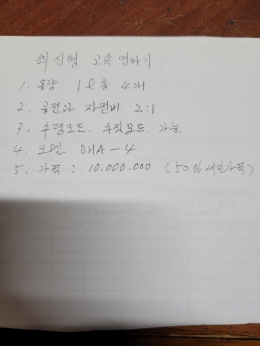 최신형 고속 연마기
1. 용량 1ℓ용 4개
2. 공전과 자전비 2:1
3. 수평모드. 수직모드. 가능.
4. 모델 DHA-4
5. 가격 : 10.000.000 (50% 세일가격)